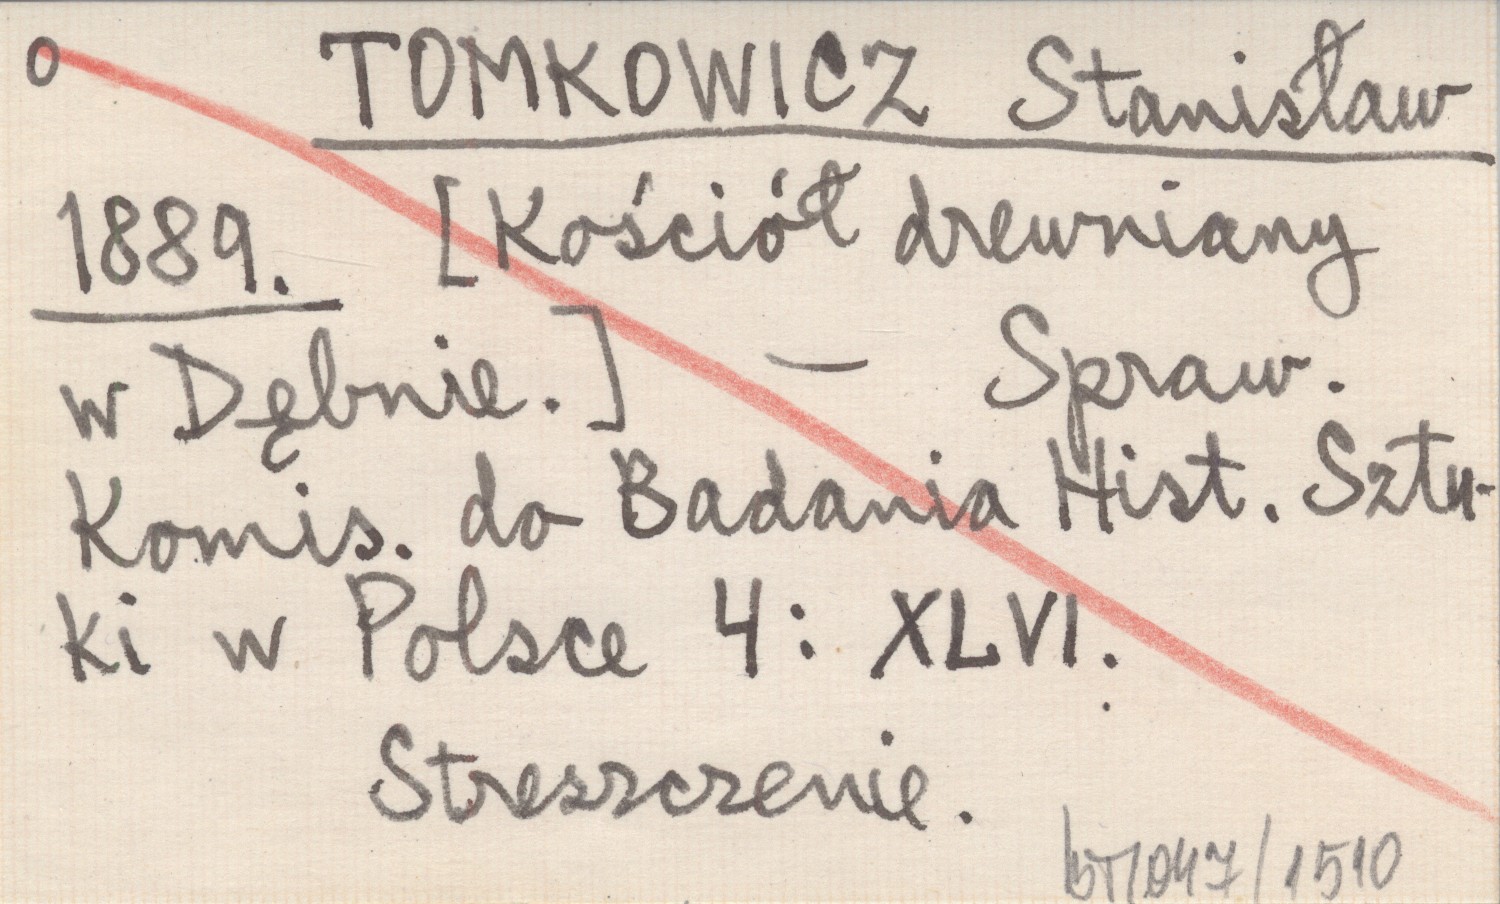 o TOMKOWICZ Stanisław
1889. [Kościół drewniany
w Dębnie.] — Spraw.
Komis. do Badania Hist. Sztu-
ki w Polsce 4: XLVI.
Streszczenie.
/1510